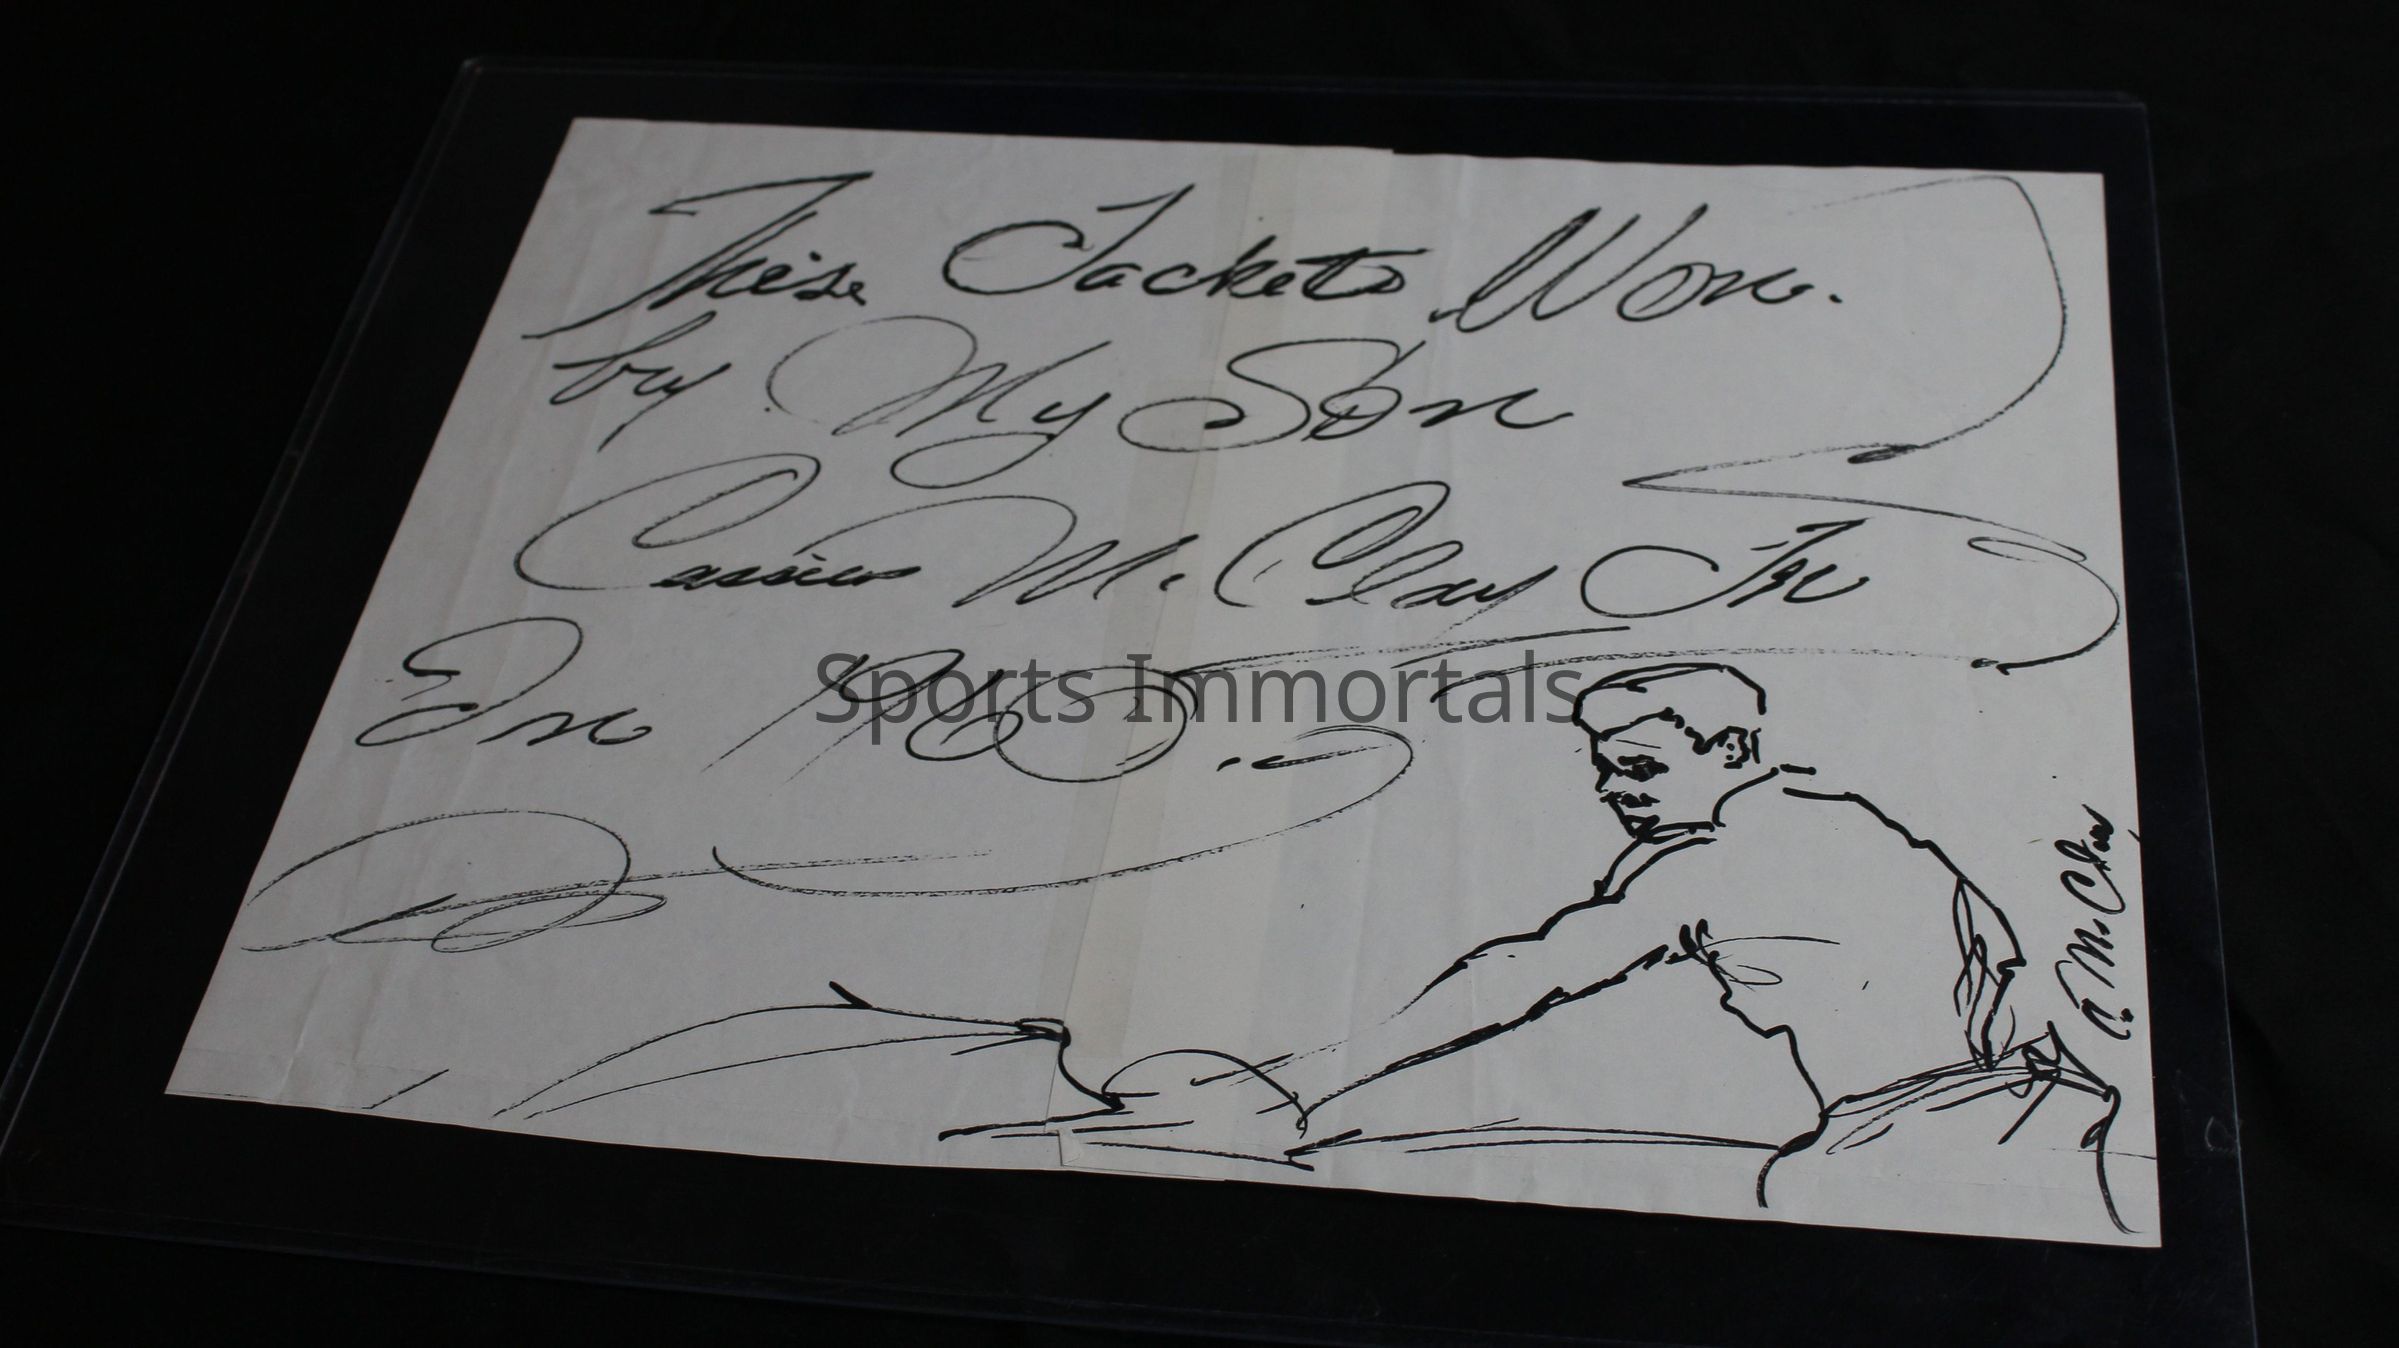 These Jackets Won.
by My Son
Cassius M. Clay Jr
In 1960
Sports Immortals
C. M. Clay